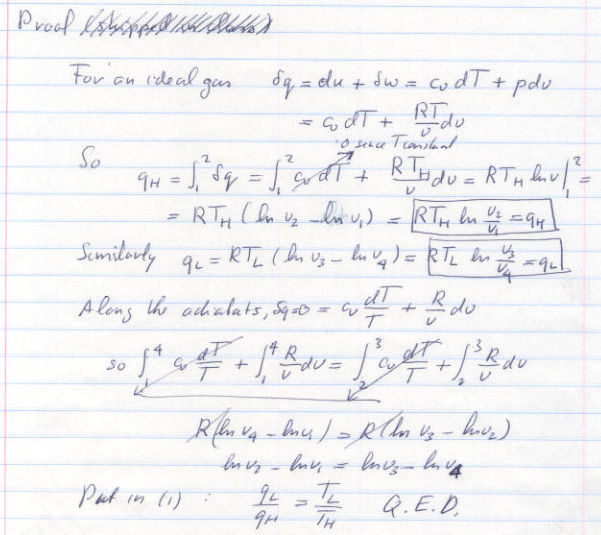 Proof
For an ideal gas δq = du + δw = c_v dT + pdv
= c_v dT + RT/v dv
0 since T constant
So q_H = ∫₁² δq = ∫₁² c_v dT + RT_H/v dv = RT_H ln v |₁² =
= RT_H (ln v₂ - ln v₁) = RT_H ln v₂/v₁ = q_H
Similarly q_L = RT_L (ln v₃ - ln v₄) = RT_L ln v₃/v₄ = q_L
Along the adiabats, δq=0 = c_v dT/T + R/v dv
so ∫₁⁴ c_v dT/T + ∫₁⁴ R/v dv = ∫₂³ c_v dT/T + ∫₂³ R/v dv
R(ln v₄ - ln v₁) = R(ln v₃ - ln v₂)
ln v₂ - ln v₁ = ln v₃ - ln v₄
Put in (1) : q_L/q_H = T_L/T_H Q.E.D.